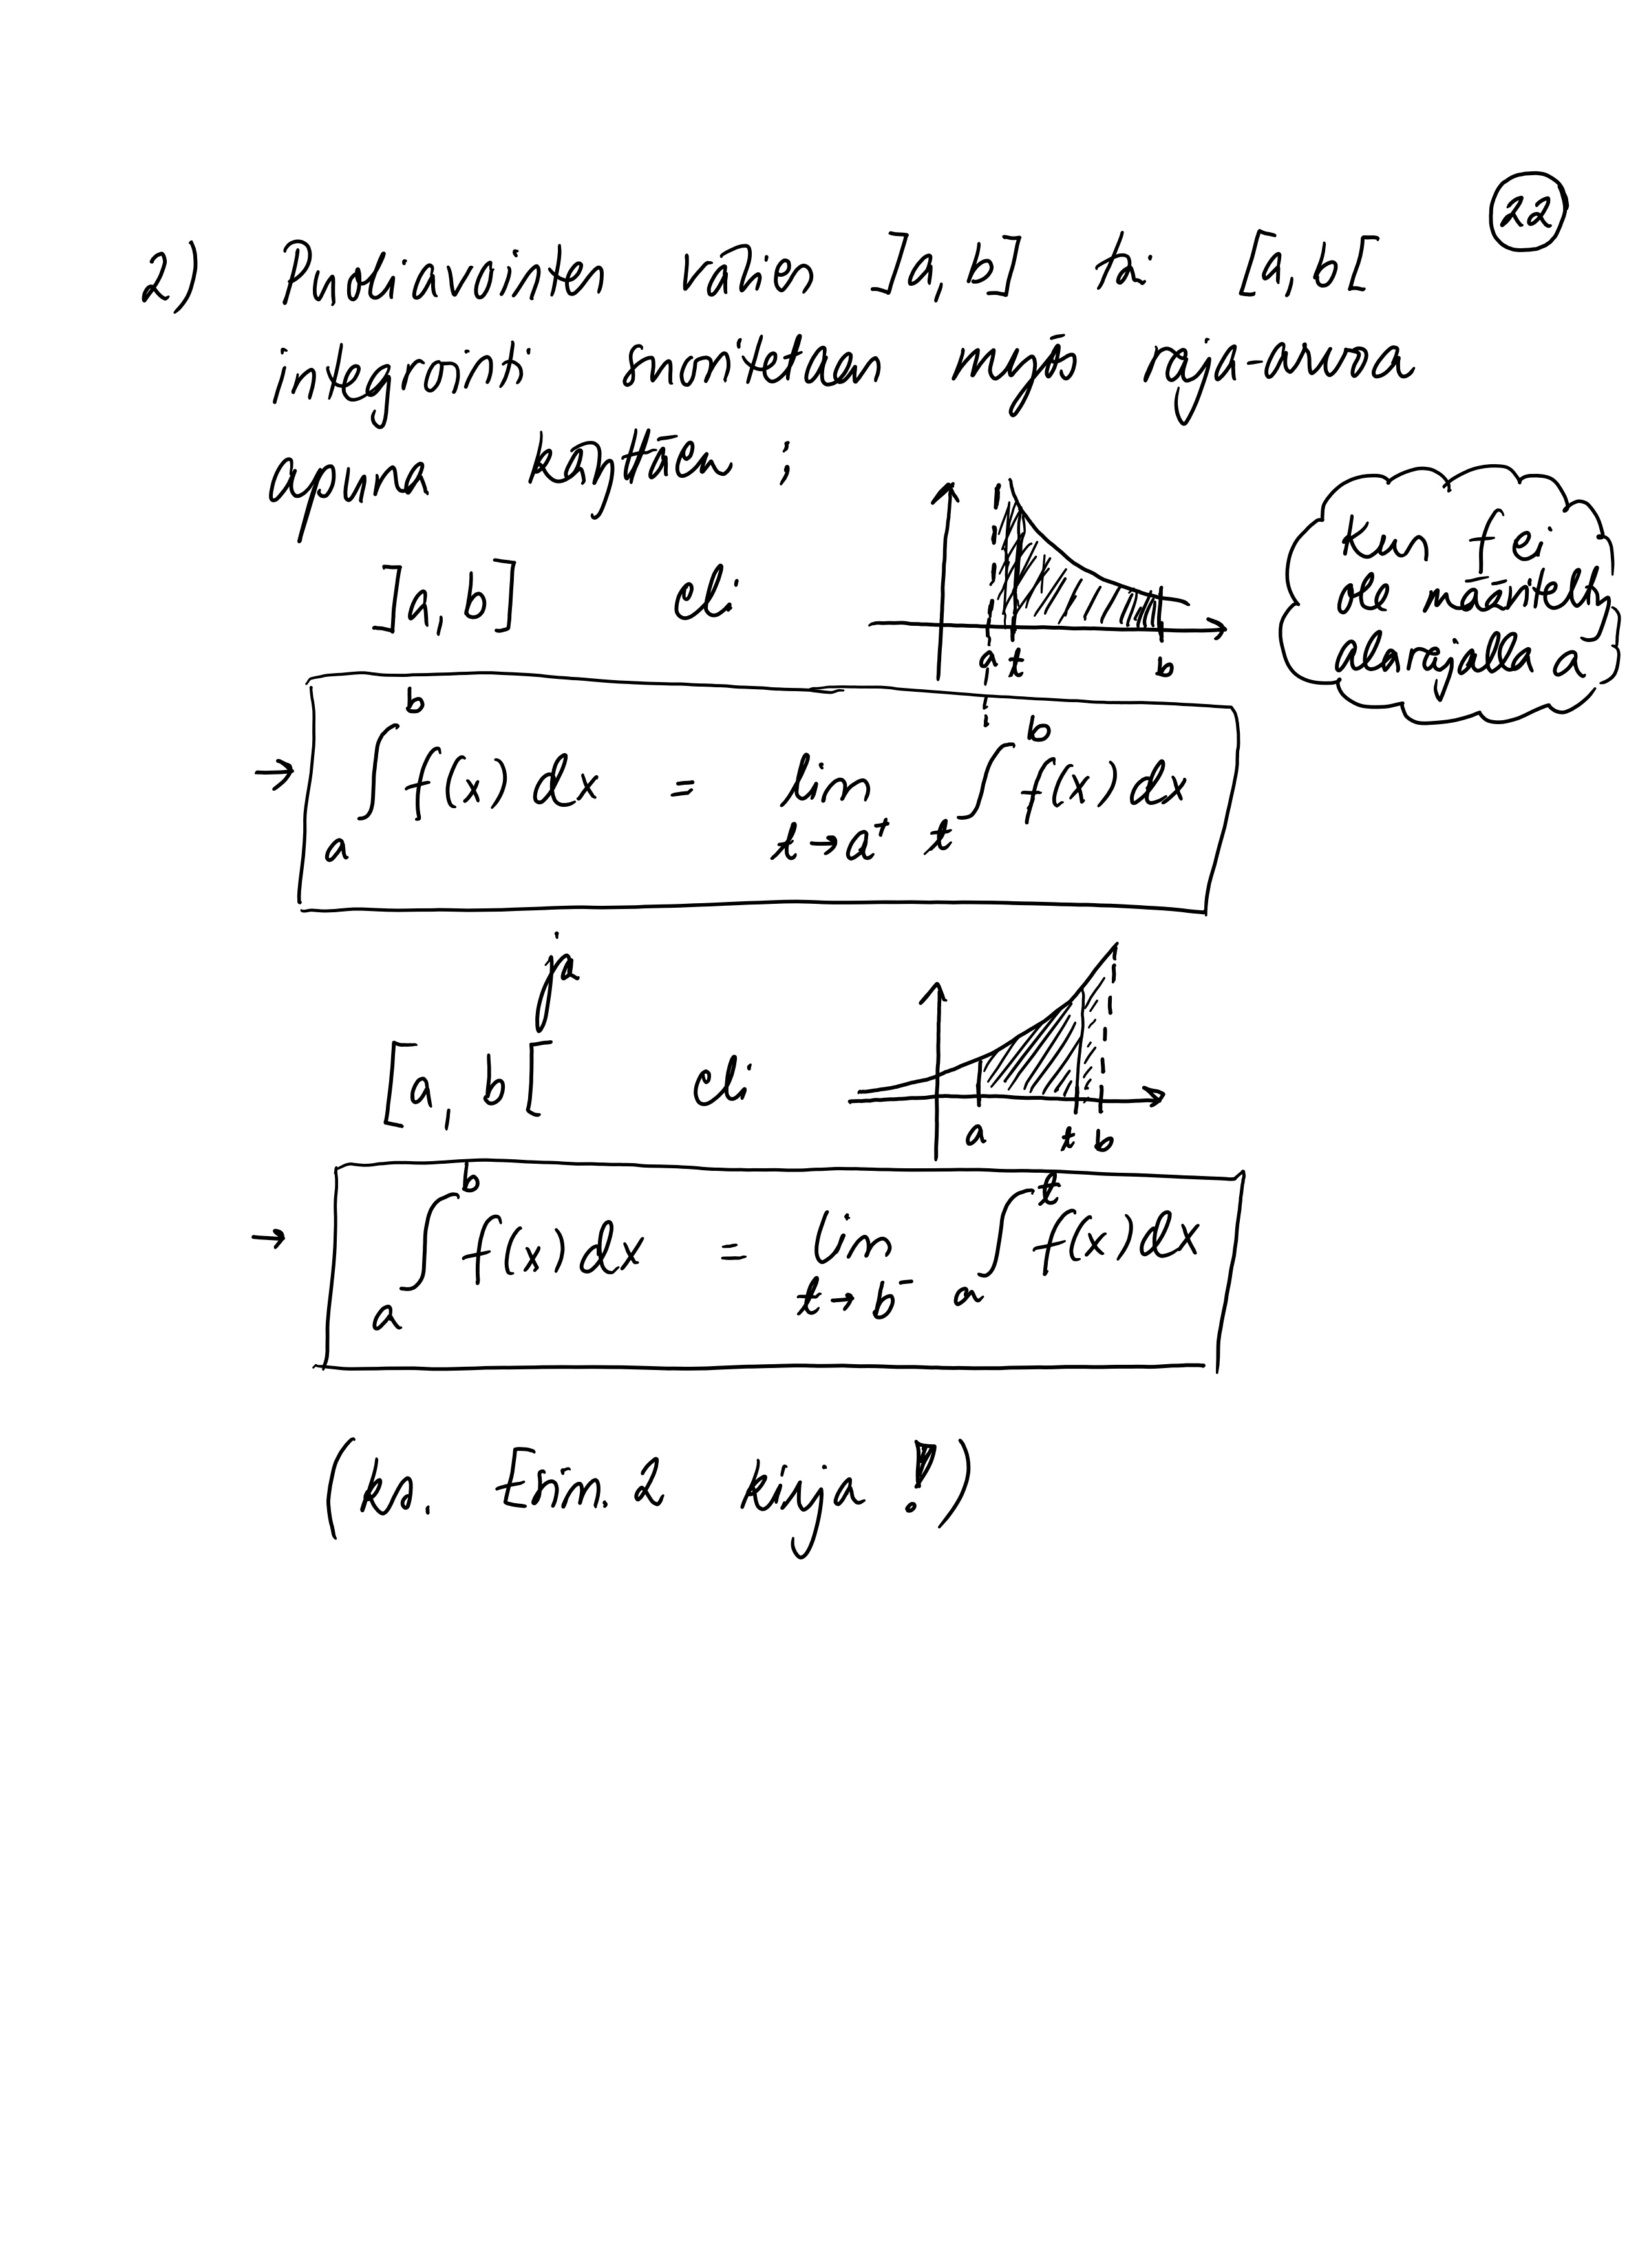 22
2) Puoliavointen välien ]a, b] tai [a, b[
integrointi suoritetaan myös raja-arvoa
apuna käyttäen :
]a, b] eli
a t b
Kun f ei
ole määritelty
alarajalla a
→ ∫_a^b f(x) dx = lim_{t→a⁺} ∫_t^b f(x) dx
ja
[a, b[ eli
a t b
→ ∫_a^b f(x) dx = lim_{t→b⁻} ∫_a^t f(x) dx
(ks. 2 kirja !)